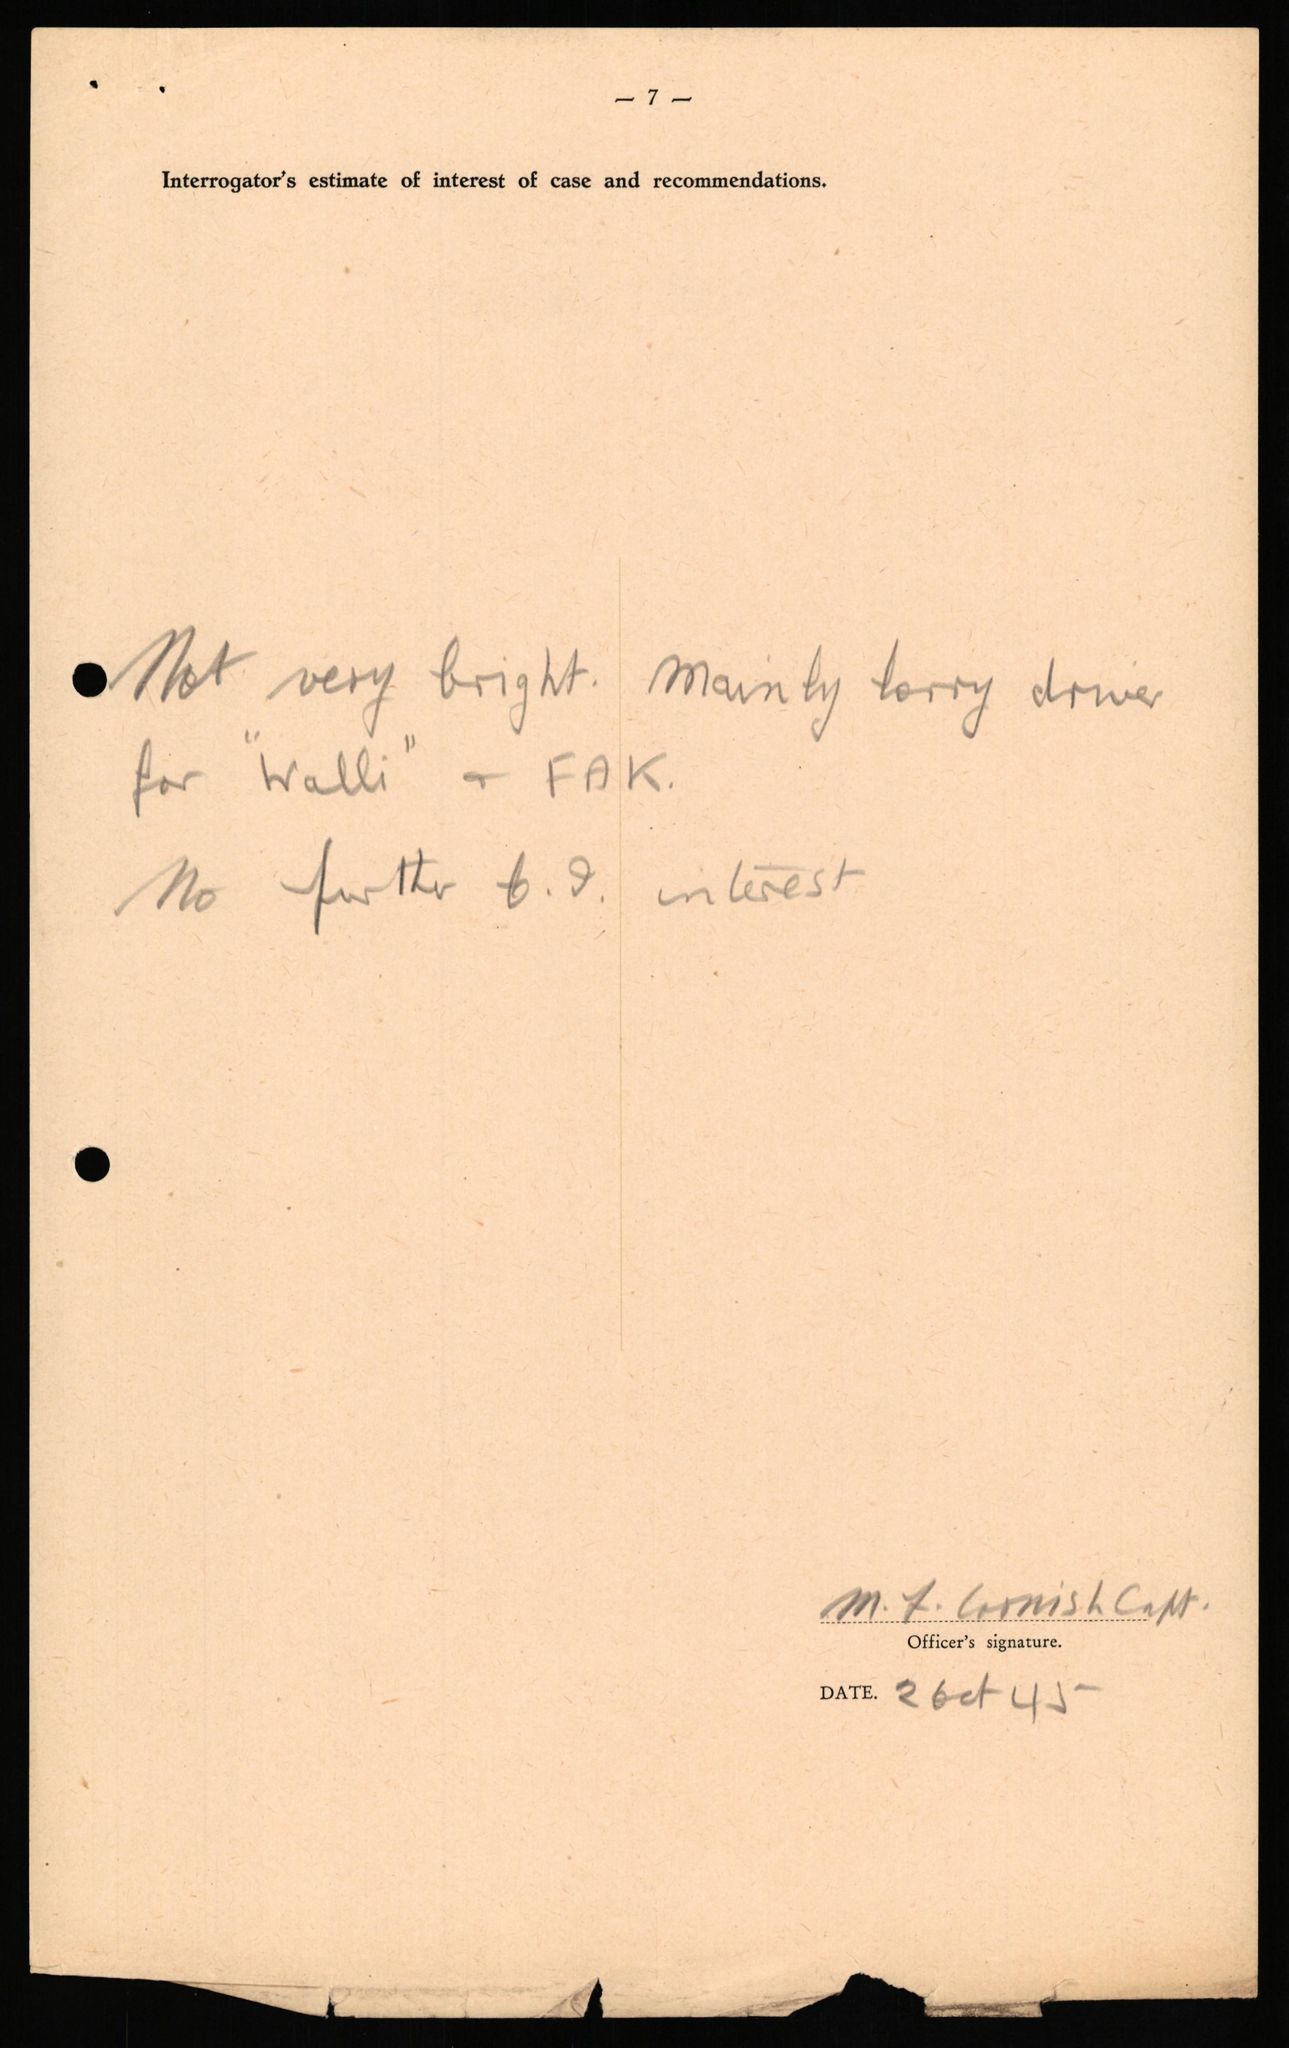 — 7 —
Interrogator's estimate of interest of case and recommendations.
Not very bright. Mainly lorry driver
for "Walli" + FAK.
No further C.I. interest
M. F. Cornish Capt.
Officer's signature.
DATE. 2 Oct 45